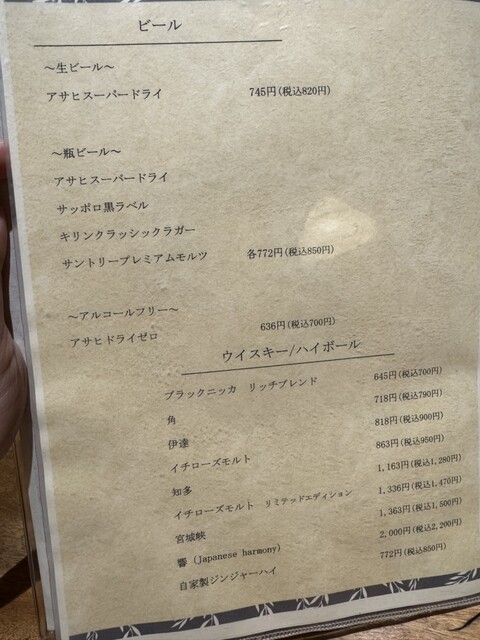 ビール
～生ビール～
アサヒスーパードライ 745円(税込820円)
～瓶ビール～
アサヒスーパードライ
サッポロ黒ラベル
キリンクラッシックラガー
サントリープレミアムモルツ 各772円(税込850円)
～アルコールフリー～
アサヒドライゼロ 636円(税込700円)
ウイスキー/ハイボール
ブラックニッカ リッチブレンド 645円(税込700円)
角 718円(税込790円)
伊達 818円(税込900円)
イチローズモルト 863円(税込950円)
知多 1,163円(税込1,280円)
イチローズモルト リミテッドエディション 1,336円(税込1,470円)
宮城峡 1,363円(税込1,500円)
響 (Japanese harmony) 2,000円(税込2,200円)
自家製ジンジャーハイ 772円(税込850円)